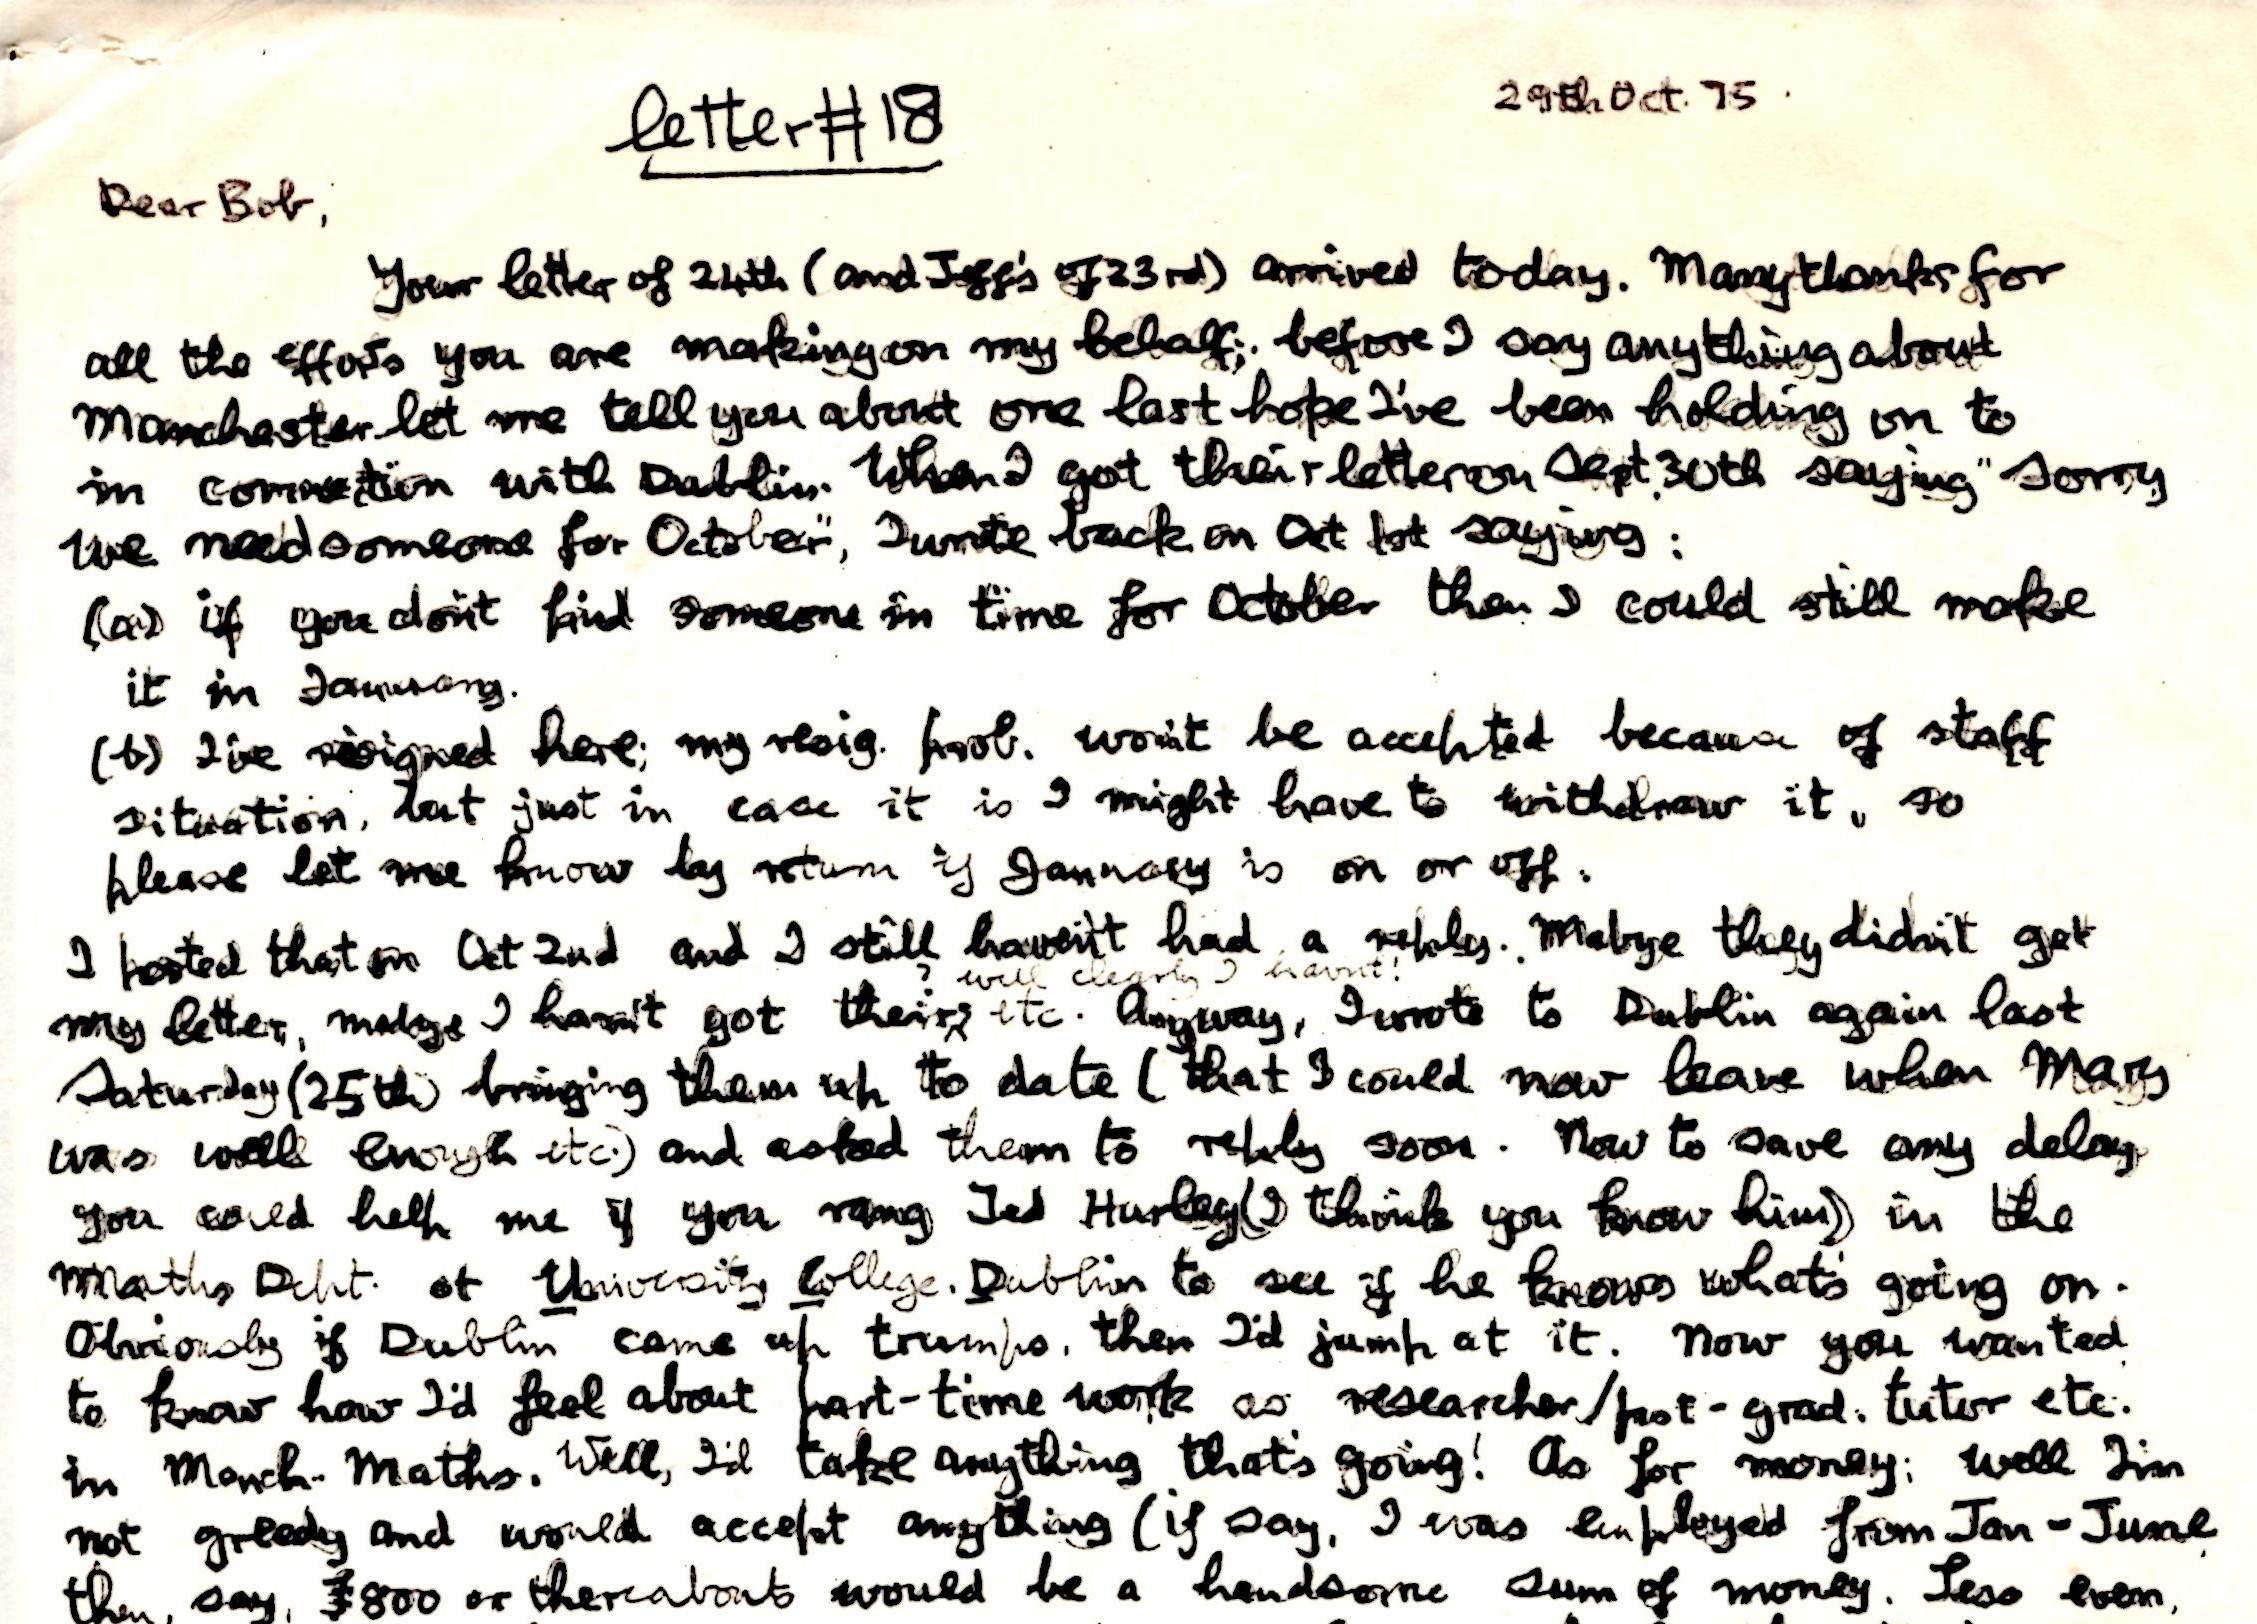 letter #18
29th Oct. 75
Dear Bob,
Your letter of 24th (and Jeff's of 23rd) arrived today. Many thanks for
all the efforts you are making on my behalf; before I say anything about
Manchester let me tell you about one last hope I've been holding on to
in connection with Dublin. When I got their letter on Sept. 30th saying "sorry
we need someone for October", I wrote back on Oct 1st saying:
(a) if you don't find someone in time for October then I could still make
it in January.
(b) I've resigned here; my resig. prob. won't be accepted because of staff
situation, but just in case it is I might have to withdraw it, so
please let me know by return if January is on or off.
I posted that on Oct 2nd and I still haven't had a reply. Mabye they didn't get
? well clearly I havn't!
my letter, mabye I havn't got theirs etc. Anyway, I wrote to Dublin again last
Saturday (25th) bringing them up to date (that I could now leave when Mary
was well enough etc.) and asked them to reply soon. Now to save any delay
you could help me if you rang Ted Hurley (I think you know him) in the
Maths Dept. at University College. Dublin to see if he knows what's going on.
Obviously if Dublin came up trumps, then I'd jump at it. Now you wanted
to know how I'd feel about part-time work as researcher/post-grad. tutor etc.
in Manch. Maths. Well, I'd take anything that's going! As for money; well I'm
not greedy and would accept anything (if say, I was employed from Jan - June
then, say, £800 or thereabouts would be a handsome sum of money. Less even,